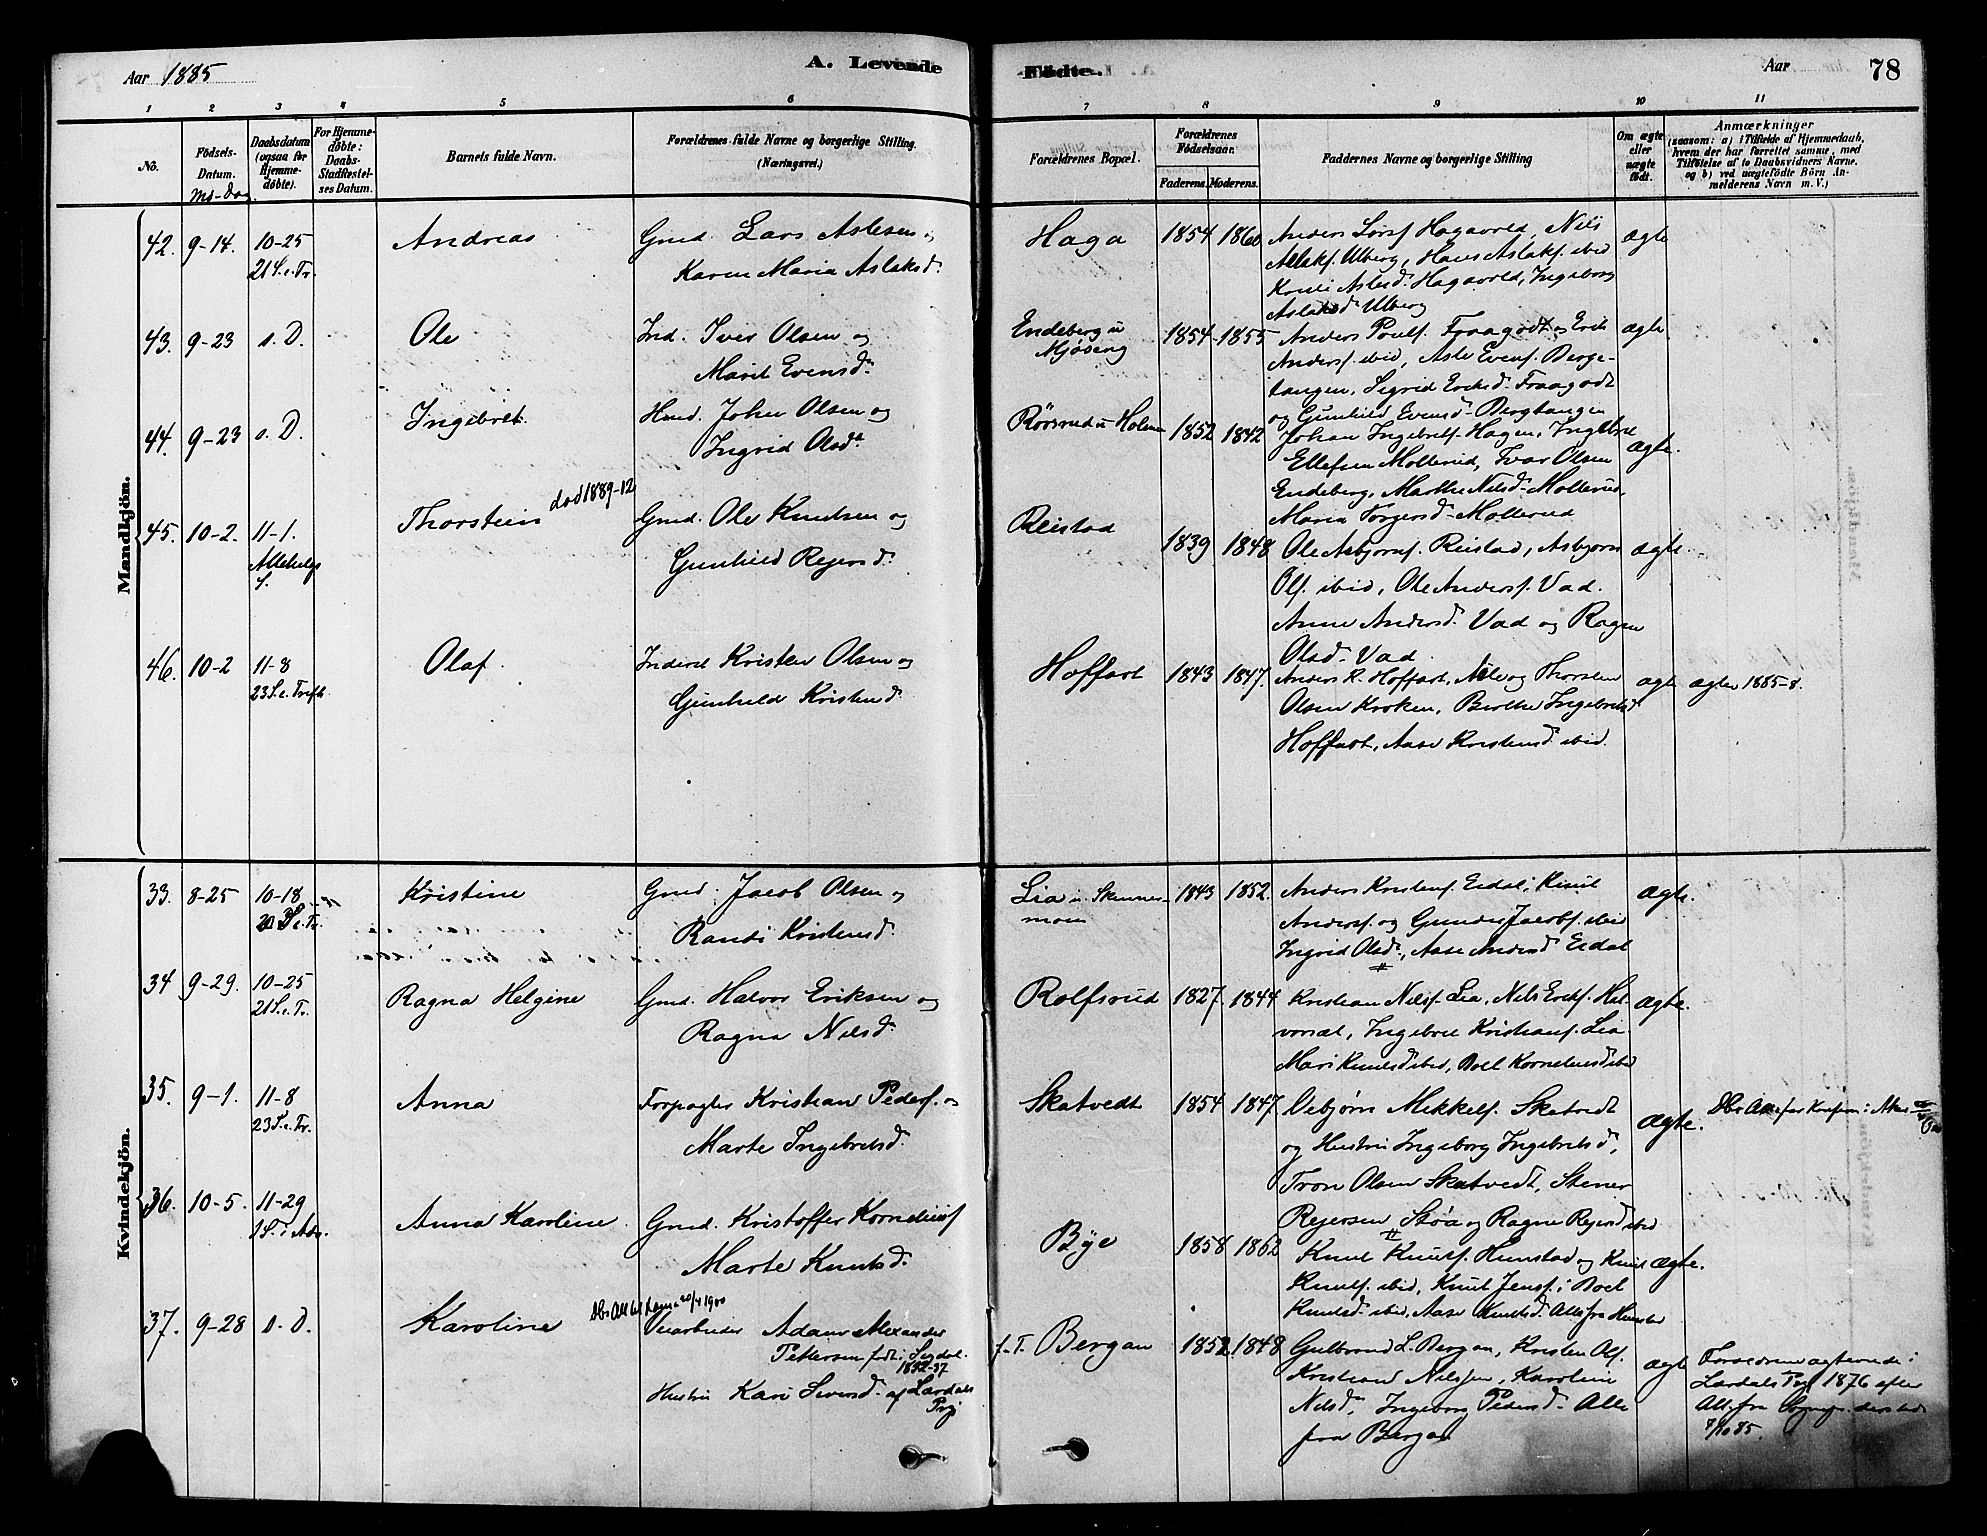 Aar 1885
A. Levende
Födte.
Aar
78
1 2 3 4 5 6 7 8 9 10 11
No.
Födsels-
Datum.
Md-Dag.
Daabsdatum
(ogsaa for
Hjemme-
döbte).
For Hjemme-
döbte:
Daabs-
Stadfæstel-
ses Datum.
Barnets fulde Navn.
Forældrenes fulde Navne og borgerlige Stilling.
(Næringsvei.)
Forældrenes Bopæl.
Forældrenes
Födselsaar.
Faderens. Moderens.
Faddernes Navne og borgerlige Stilling
Om ægte
eller
uægte
födt.
Anmærkninger
(saasom: a) i Tilfælde af Hjemmedaab,
hvem der har forrettet samme, med
Tilföielse af to Daabsvidners Navne,
og b) ved uægtefödte Börn An-
melderens Navn m. V.)
Mandkjön.
42. 9-14. 10-25
21 S.e.Tr.
Andreas
Gmd. Lars Aslesen og
Karen Maria Aslaksd.
Haga 1854 1860
Anders Larsf Hagavold, Nils
Aslakf. Ulberg, Hans Aslakf. ibid
Aslesd. Hagavold, Ingeborg
Aslaksd Ulberg
ægte
43. 9-23 s. D.
Ole
Ind. Iver Olsen og
Marit Evensd.
Endeberg u
Mjøseng
1854 1855
Anders Poulf. Fraagodt og Erik
Andersf. ibid, Asle Evensf. Berge-
tangen, Sigrid Eriksd. Fraagodt
og Gunhild Evensd. Bergtangen
ægte
44. 9-23 s. D.
Ingebret.
Hmd. Johan Olsen og
Ingrid Olsdt
Rörsrud u Holme 1852 1842
Johan Ingebretf. Hagen, Ingebret
Ellefsen Mollerud, Ivar Olsen
Endeberg, Marthe Nilsd. Mollerud,
Maria Torgersd. Mollerud
ægte.
45. 10-2. 11-1.
Allehelgs
S.
Thorstein død 1889-12
Gmd. Ole Knudsen og
Gunhild Reiersd.
Reistad
1839 1848
Ole Asbjørnf. Reistad, Asbjørn
Olf. ibid, Ole Andersf. Vad.
Anne Andersd. Vad og Ragne
Olsd. Vad.
ægte.
46. 10-2 11-8
23 S.e. Trefh.
Olaf.
Inderst Kristen Olsen og
Gunhild Kristensd.
Hoffart 1843 1847.
Anders K. Hoffart, Nils og Thorsten
Olsen Kroken, Berthe Ingebretsd
Hoffart, Aase Kristensd ibid.
ægte
ægter 1885-8.
Kvindekjön.
33. 8-25 10-18
20 S.e.Tr.
Kristine
Gmd. Jacob Olsen og
Randi Kristensd.
Lia u. Skinnes-
moen
1843 1852.
Anders Kristenf. Eidal, Knut
Andersf. og Gunder Jacobf. ibid
Ingrid Olsd., Aase Andersd Eidal
ægte.
34 9-29. 10-25
21 S.e.Tr.
Ragna Helgine
Gmd. Halvor Eriksen og
Ragna Nilsd.
Rolfsrud 1827. 1844
Kristian Nilsf. Lia, Nils Erikf. Hal-
Ingebret Kristianf. Lia.
Mari Knudsd ibid, Boel Korneliusd ibid
ægte.
35. 9-1. 11-8
23 S.e. Tr.
Anna
Forpagter Kristian Pedersf. og
Marte Ingebretsd.
Skatvedt 1854 1847
Vebjørn Mikkelf. Skatvedt
og Hustru Ingeborg Ingebretsd,
Tron Olsen Skatvedt, Stener
Reiersen Støa og Ragne Reiersd ibid
ægte.
36. 10-5. 11-29
1 S. i Adv.
Anna Karoline.
Gmd. Kristoffer Korneliusf
Marte Knutsd.
Bye 1858 1862
Knut Knutsf. Hunstad og Knut
Knutsf. ibid, Knut Jensf. i Boel
Knudsd. ibid, Aase Knudsd Alle fra Hunstad
ægte.
37. 9-28 s. D.
Karoline
Veiarbeider Adam Alexander
Pettersen født i Sigdal
1852
Hustru Kari Siversd. af Lærdals
Prgj
f.T. Bergan 1852. 1848
Gulbrand L. Bergan, Kristen Olf.
Kristian Nilssen, Karoline
Nilsd, Ingeborg Pedersd. Alle
fra Bergan
ægte
Forældrene ægteviede i
Lærdals Prgj 1876 efter
Att. fra Sognepr. dersteds
8/10 85.